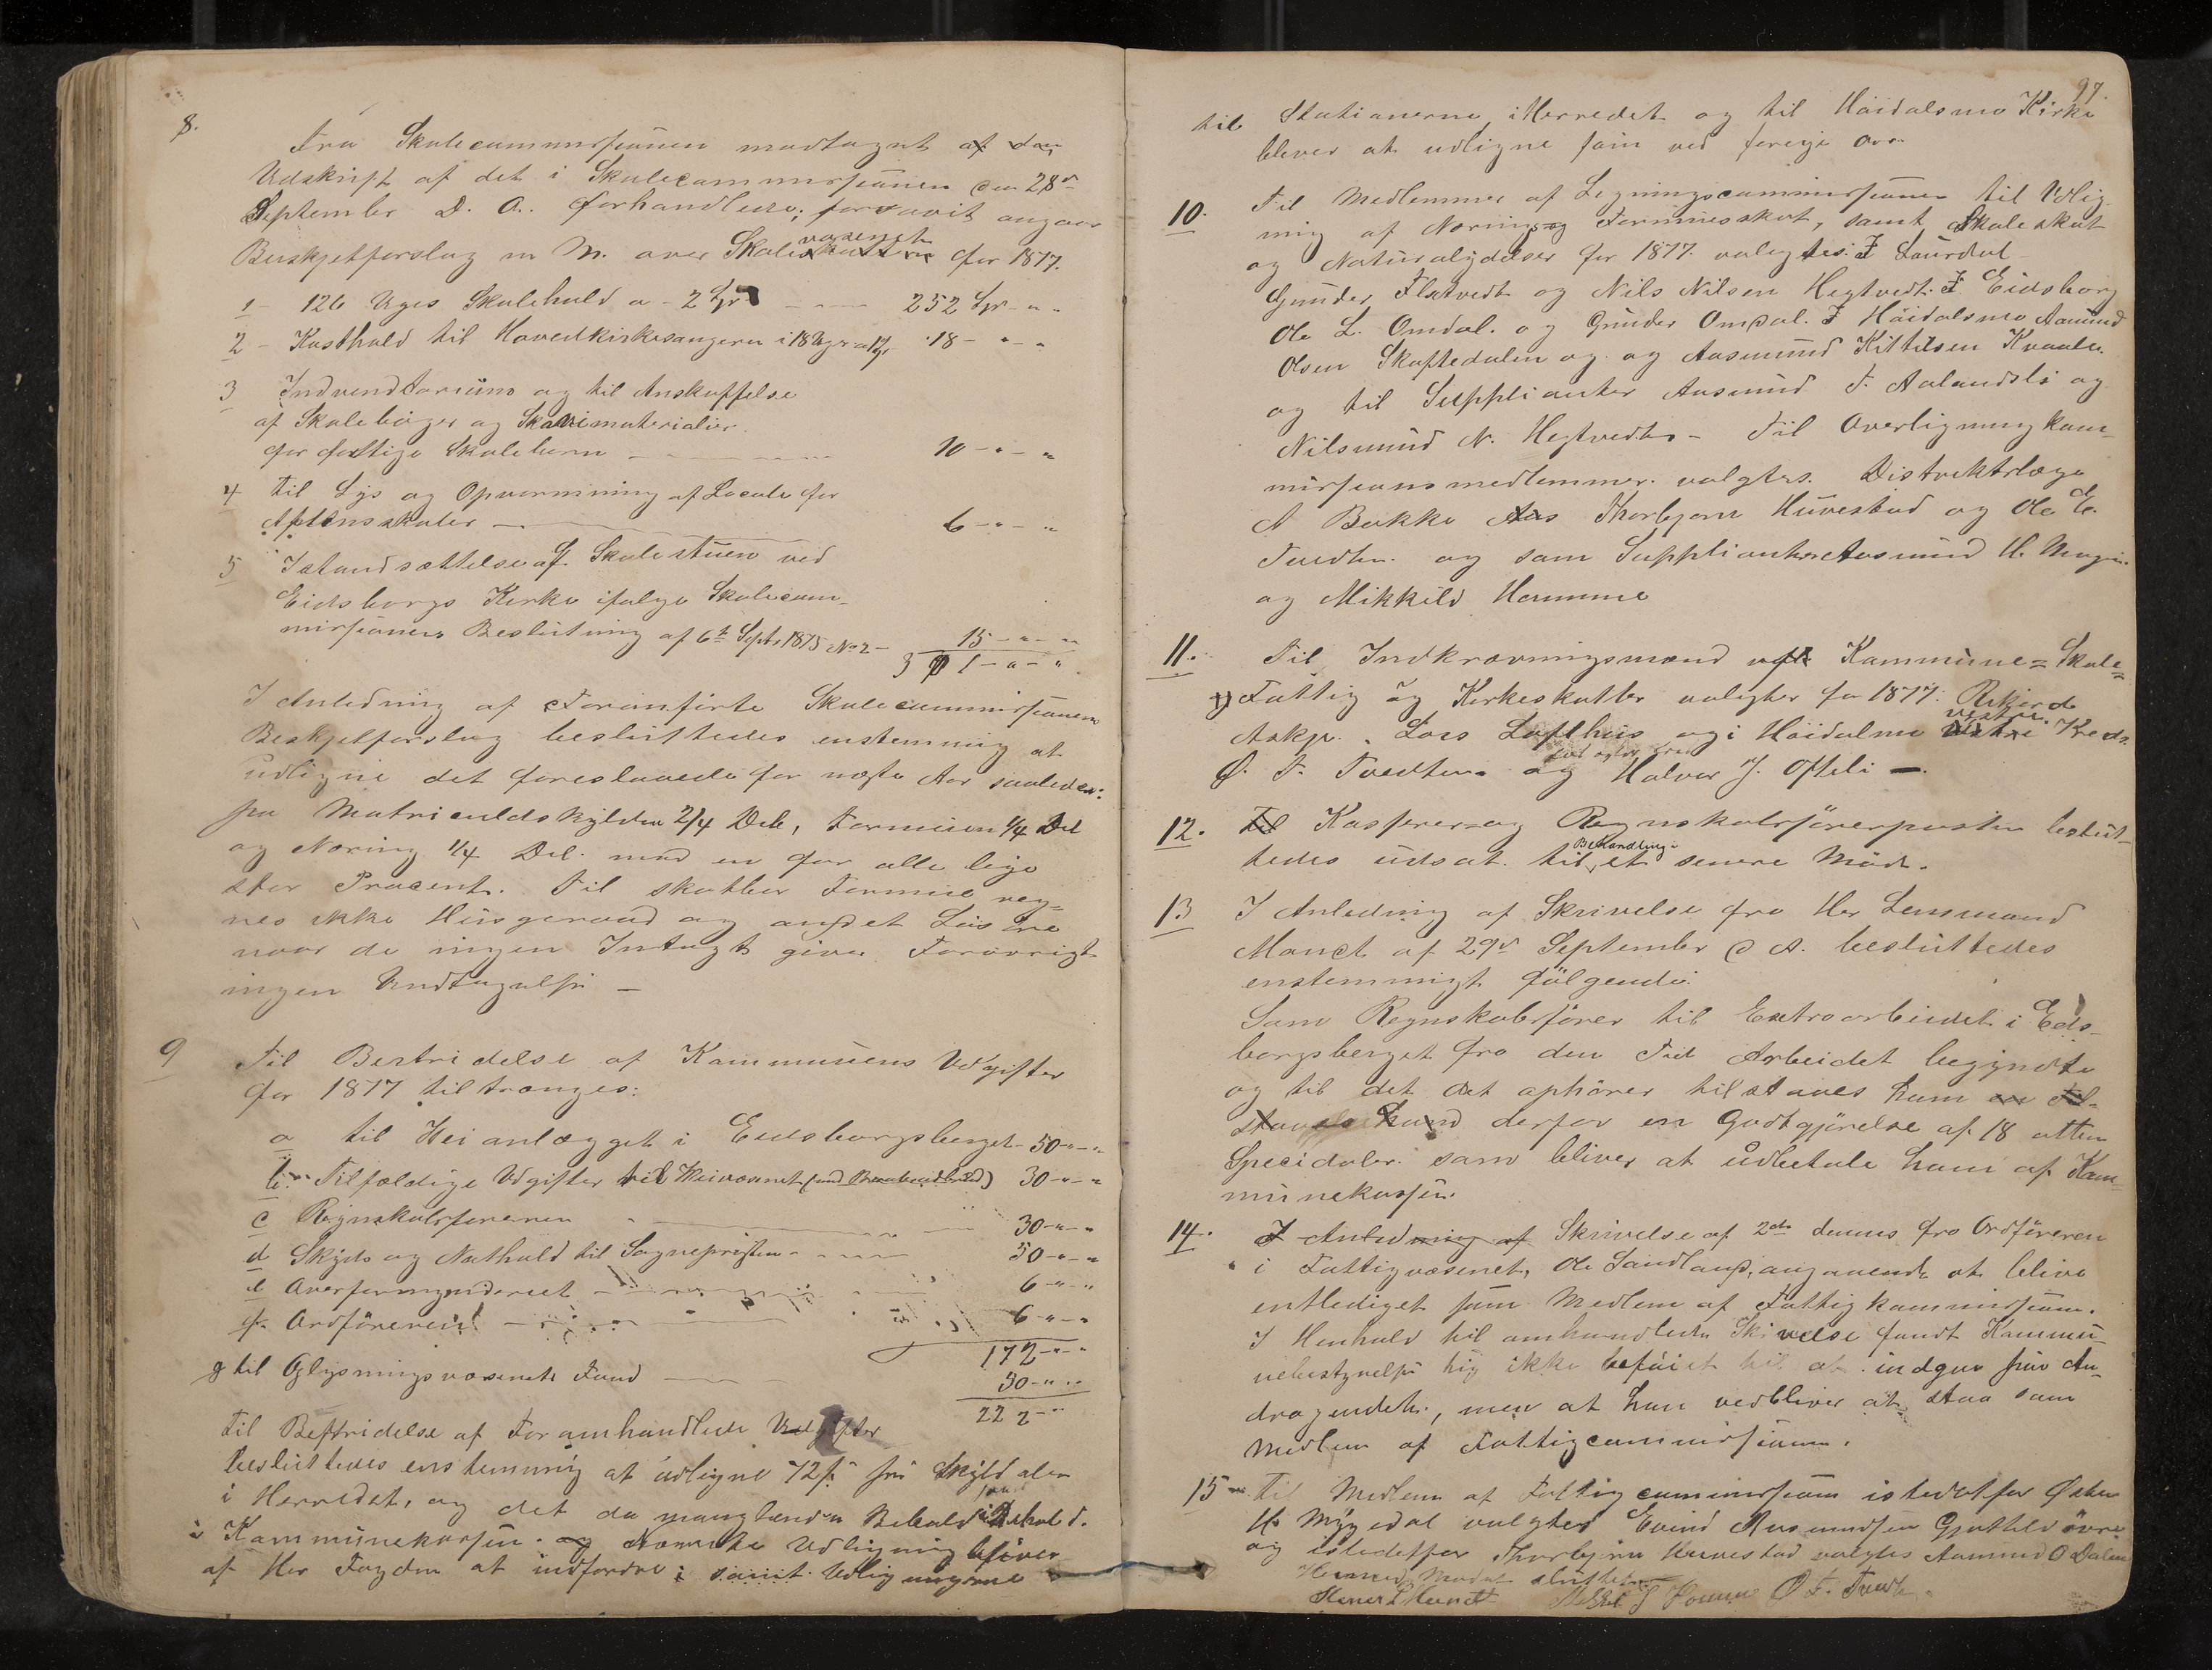 8.
Fra Skulecommissionen modtaget af den
Udskrift af det i Skulecommissionen den 28de
September D. A. forhandlede; forsaavit angaar
Budskjetforslag m M. over Skolevæsenet for 1877.
1 - 126 Uges Skulehuld a - 2 Spd - 252 Spd - " -
2 - Kosthuld til Hovedkirkesangeren i 18 Uger a 1 Spd - 18 - " - "
3 Indvendtarium og til Anskaffelse
af Skulebøger og Skrivematerialier
for fattige Skulebørn - 10 - " - "
4 til Lys og Opvarmning af Locale for
Aftensskuler - 6 - " - "
5 Istandsættelse af Skulestuen ved
Eidsborgs Kirke ifølge Skulecom-
missionens Beslutning af 6te Septr 1875 No 2 - 15 - " - "
301 - " - "
I Anledning af Foranførte Skulecommissionens
Beskjetforslag besluttedes enstemmig at
udligne det foreslaaede for næste Aar saaledes:
paa Matriculdskylden 2/4 Dele, Formuen 1/4 Del
og Næring 1/4 Del. med en for alle lige
stor Procent. Til skatbar Formue reg-
nes ikke Husgeraad og andet Løsøre
naar de ingen Indtægt giver. Forøvrigt
ingen Undtagelse -
9 Til Bestridelse af Kommunens Udgifter
for 1877 tiltrænges:
a til Veianlægget i Eidsborgsberget - 50 - " - "
b. Tilfældige Udgifter til Veivæsenet 30 - " - "
c Regnskabsføreren 30 - " - "
d Skyds og Nathuld til Sognepresten - 50 - " - "
e Overformynderiet 6 - " - "
f. Ordføreren 6 - " - "
172 - " - "
g til Oplysningsvæsenets Fond 50 - " - "
222 - " -
Til Bestridelse af Foramhandlede Udgifter
besluttedes enstemmig at udligne 72 s paa Skylddaler
i Herredet, og det da manglende i Behold.
i Kommunekassen. Nævnte Udligning bliver
af Her Fogden at indfordre; samt Udligningerne
97.
til Stationerne i Herredet og til Høidalsmo Kirke
bliver at udligne som ved forrige Aar.
10. Til Medlemmer af Ligningscommissionen til Udlig-
ning af Nærings og Formuesskat, samt Skuleskat
og Naturalydelser for 1877. valgtes: I Laurdal
Gunder Flatvedt og Nils Nilsen Hegtvedt. I Eidsborg
Ole L. Omdal. og Gunder Omdal. I Høidalsmo Aamund
Olsen Skaftedalen og og Aasmund Kittilsen Kvaale.
og til Supplianter Aasmund T. Aalandsli og
Nilsmund N. Hegtvedt. - Til Overligningkom-
missionsmedlemmer valgtes. Distriktslæge
A Bakke Thorbjørn Huvestad og Ole E.
Tvedten. og som Supplianter Aasmund H. Mogen.
og Mikkild Homme
11. Til Indkrævningsmænd Kommune= Skule=
Fattig og Kirkeskatter valgtes for 1877. Rikard
Askj. Lars Lofthus og i Høidalmo vestre Kreds.
Ø. T. Tvedten og Halvor J. Ofteli -.
12. Kasserer og Regnskabsførerposten beslut-
tedes udsat til Behandling i et senere Møde.
13 I Anledning af Skrivelse fra Her Lensmand
Manct af 29de September d A. besluttedes
enstemmigt følgende:
Som Regnskabsfører til Extraarbeidet i Eids-
borgsberget fra den Tid Arbeidet begyndte
og til det det ophører tilstaaes ham
derfor en Godtgjørelse af 18 atten
Specidaler. som bliver at udbetale ham af Kom-
munekassen.
14. I Anledning af Skrivelse af 2den dennes fra Ordføreren
i Fattigvæsenet, Ole Sandland, angaaende at blive
entlediget som Medlem af Fattigkommission.
I Henhold til omhandlede Skrivelse fandt Kommu-
nebestyrelse sig ikke beføiet til at indgaa paa An-
dragendet, men at han vedbliver at staa som
Medlem af Fattigcommission.
15 - Til Medlem af Fattigcommission istedetfor Østen
H. Mygedal valgtes Eivind Aasmundsen Gjøthild øvre
og istedetfor Thorbjørn Huvestad valgtes Aamund O Dalen
Hermed Mødet sluttet
Mikkel J Homme Ø T. Tvedte